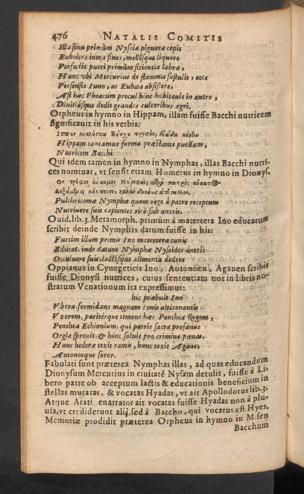 476 NATALIS COMITIS
Illa sinu primùm Nysæa pignora cepit
Euboicos intra fines, mellisque liquore
Perfusis puri primùm sitientia labra,
Hunc vbi Mercurius de flamma sustulit, ecce
Persensit Iuno, ac Eubœa absistere,
Ast hæc Pheacum procul hinc habitauit in antro,
Diuitiasque dedit grandes cultoribus agri.
Orpheus in hymno in Hippam, illam fuisse Bacchi nutricem
significauit in his verbis:
Hippam tantamus forma præstante puellam,
Nutricem Bacchi
Qui idem tamen in hymno in Nymphas, illas Bacchi nutri-
ces nominat, vt sensit etiam Homerus in hymno in Dionys.
Pulchricomæ Nymphæ quem rege à patre receptum
Nutriuere suis capientes ritè sub antris.
Ouid. lib. 3. Metamorph. primùm à matertera Ino educatum
scribit deinde Nymphis datum fuisse in his:
Furtim illum primis Ino matertera cunis
Educat. inde datum Nymphæ Nyseides antris
Occuluere suis, lactisque alimenta dedere
Oppianus in Cynegeticis Ino, Autonoën, Agauen scribit
fuisse Dionysi nutrices, cuius sententiam nos in libris no-
stratum Venationum ita expressimus:
hic præbuit Ino
Vbera formidans magnam Iouis altitonantis
Vxorem, paritérque timens hæc Penthea Regem,
Penthea Echionium, qui patris sacra profanus
Orgia spreuit: & hinc soluit pro crimine pœnas.
Hunc indutæ texit ramis, hunc texit Agaue,
Autonoeque soror.
Fabulati sunt præterea Nymphas illas, ad quas educandum
Dionysum Mercurius in ciuitatē Nysam detulit, fuisse à Li-
bero patre ob acceptum lactis & educationis beneficium in
stellas mutatas, & vocatas Hyadas, vt ait Apollodorus lib. 3.
Atque Arati enarrator ait vocatas fuisse Hyadas non à plu-
uia, vt crediderunt alij, sed à Baccho, qui vocatus est Hyes.
Memoriæ prodidit præterea Orpheus in hymno in Misen
Bacchum